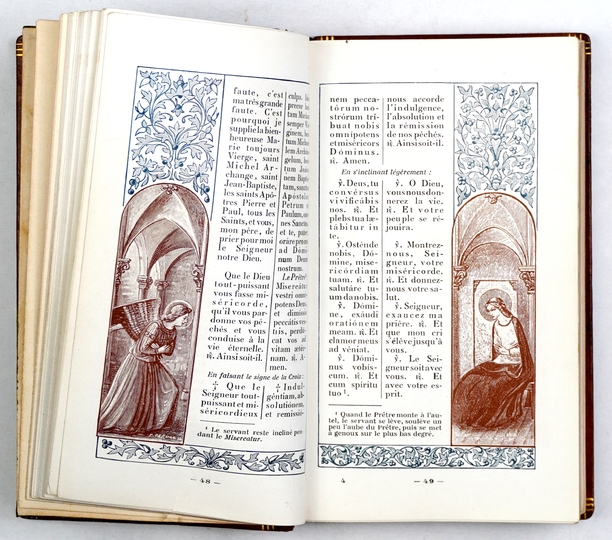 faute, c'est
ma très grande
faute. C'est
pourquoi je
supplie la bien-
heureuse Ma-
rie toujours
Vierge, saint
Michel Ar-
change, saint
Jean-Baptiste,
les saints Apô-
tres Pierre et
Paul, tous les
Saints, et vous,
mon père, de
prier pour moi
le Seigneur
notre Dieu.
Que le Dieu
tout-puissant
vous fasse mi-
séricorde,
qu'il vous par-
donne vos pé-
chés et vous
conduise à la
vie éternelle.
℟. Ainsi soit-il.
culpa.
precor
tam
semper
ginem,
tum
lem
gelum,
tum
nem
tam, sanct
Apóstolo
Petrum
Paulum, om
nes Sanctos
et te, pater
oráre pro
ad Dómi-
num Deum
nostrum.
Le Prêtre
Misereátu
vestri omni
potens Deus
et dimissis
peccátis ve
tris, perdú
cat vos ad
vitam ætér-
nam. ℟. A-
men.
En faisant le signe de la Croix :
✝ Que le
Seigneur tout-
puissant et mi-
séricordieux
✝ Indul-
géntiam, ab-
solutiónem,
et remissió-
¹ Le servant reste incliné pen-
dant le Misereatur.
— 48 —
nem pecca-
tórum no-
strórum trí-
buat nobis
omnípotens
et miséricors
Dóminus.
℟. Amen.
nous accorde
l'indulgence,
l'absolution et
la rémission
de nos péchés.
℟. Ainsi soit-il.
En s'inclinant légèrement :
℣. Deus, tu
convérsus
vivificábis
nos. ℟. Et
plebs tua læ-
tábitur in
te.
℣. Osténde
nobis, Dó-
mine, mise-
ricórdiam
tuam. ℟. Et
salutáre tu-
um da nobis.
℣. Dómi-
ne, exáudi
oratiónem
meam. ℟. Et
clamor meus
ad te véniat.
℣. Dómi-
nus vobís-
cum. ℟. Et
cum spíritu
tuo ¹.
℣. O Dieu,
vous nous don-
nerez la vie.
℟. Et votre
peuple se ré-
jouira.
℣. Montrez-
nous, Sei-
gneur, votre
miséricorde.
℟. Et donnez-
nous votre sa-
lut.
℣. Seigneur,
exaucez ma
prière. ℟. Et
que mon cri
s'élève jusqu'à
vous.
℣. Le Sei-
gneur soit avec
vous. ℟. Et
avec votre es-
prit.
¹ Quand le Prêtre monte à l'au-
tel, le servant se lève, soulève un
peu l'aube du Prêtre, puis se met
à genoux sur le plus bas degré.
4
— 49 —